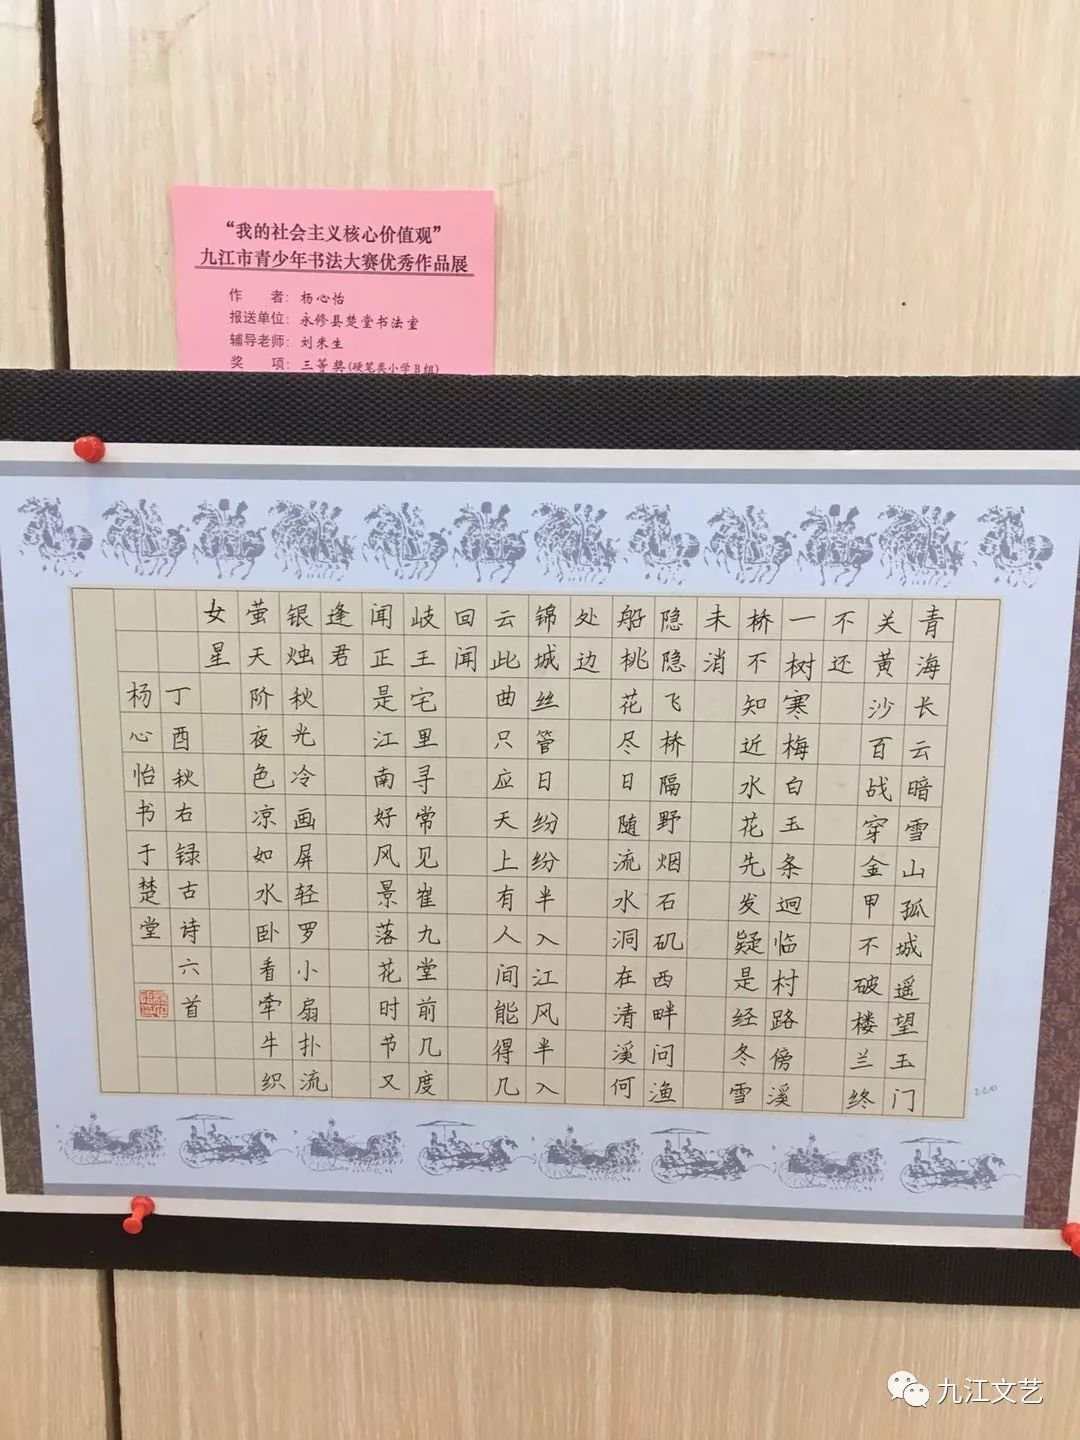 “我的社会主义核心价值观”
九江市青少年书法大赛优秀作品展
作　者：杨心怡
报送单位：永修县楚堂书法室
辅导老师：刘朱生
奖　项：三等奖(硬笔类小学B组)
青海长云暗雪山孤城遥望玉门
关黄沙百战穿金甲不破楼兰终
不还
一树寒梅白玉条迥临村路傍溪
桥不知近水花先发疑是经冬雪
未消
隐隐飞桥隔野烟石矶西畔问渔
船桃花尽日随流水洞在清溪何
处边
锦城丝管日纷纷半入江风半入
云此曲只应天上有人间能得几
回闻
岐王宅里寻常见崔九堂前几度
闻正是江南好风景落花时节又
逢君
银烛秋光冷画屏轻罗小扇扑流
萤天阶夜色凉如水卧看牵牛织
女星
丁酉秋右録古诗六首
杨心怡书于楚堂
220
九江文艺